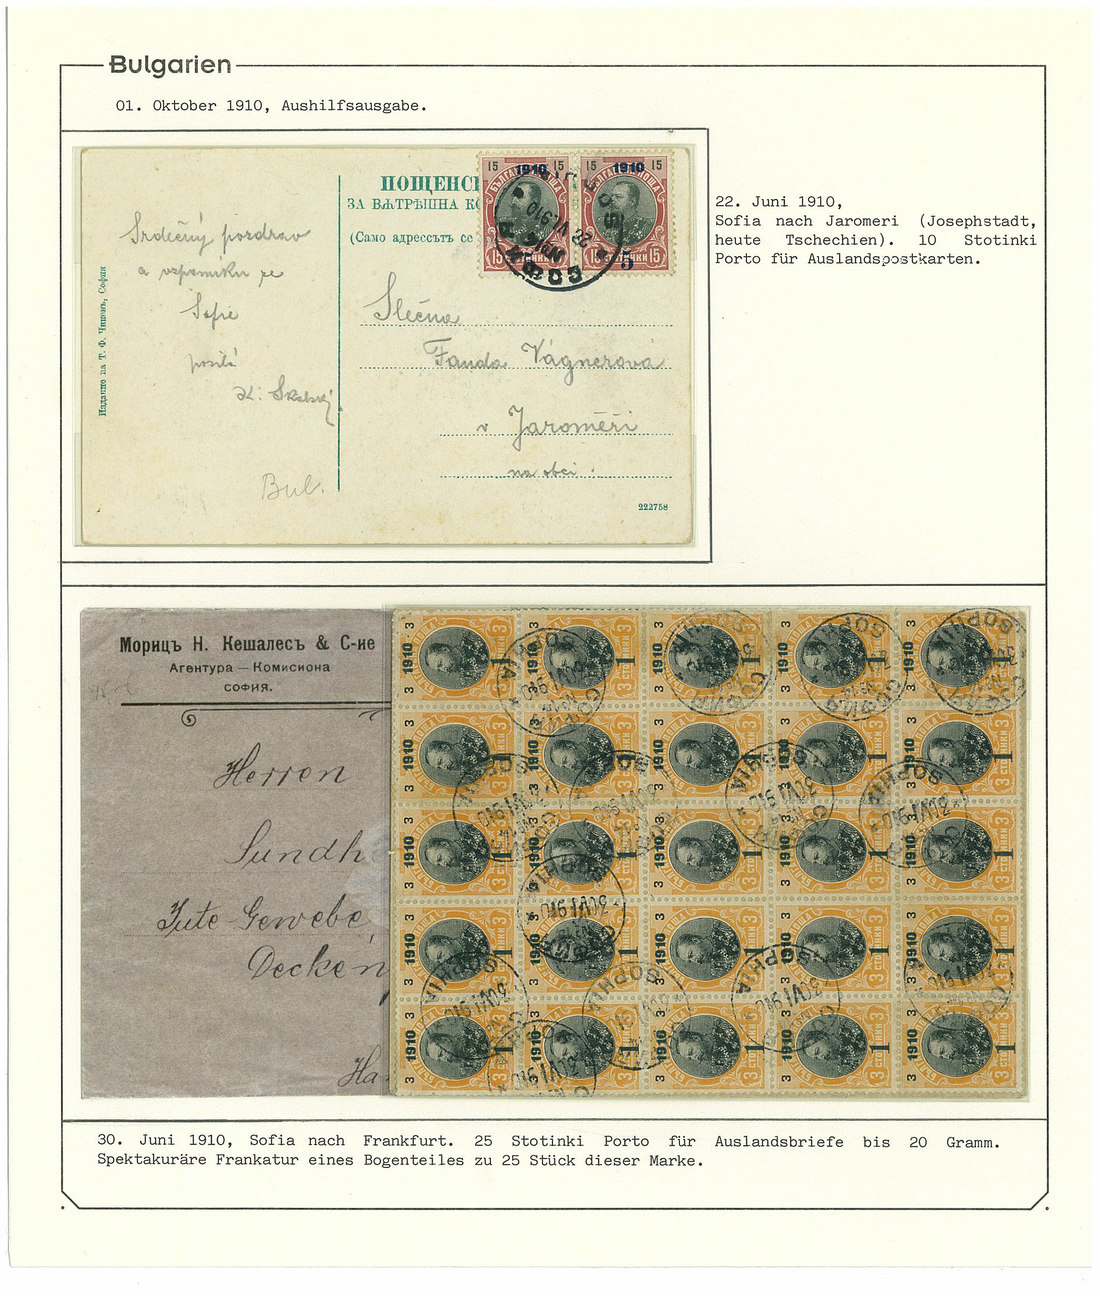 Bulgarien
01. Oktober 1910, Aushilfsausgabe.
ПОЩЕНС
ЗА ВѪТРѢШНА К
(Само адрессътъ се
15 1910 15
15 1910 15
БЪЛГАРИЯ
15 СТОТИНКИ 15
5
СОФИЯ
22 VI 910
Srdečný pozdrav
a vzpomínku ze
Sofie
posílá
K. Skalský
Bul.
Издание на Т. Ф. Чипевъ, София
Slečna
Fanda Vágnerová
v Jaroměři
na obci.
222758
22. Juni 1910,
Sofia nach Jaromeri (Josephstadt,
heute Tschechien). 10 Stotinki
Porto für Auslandspostkarten.
Морицъ Н. Кешалесъ & С-ие
Агентура — Комисиона
СОФИЯ.
Herren
Sundh
Jute-Gewebe,
Decken
Ha
3 1910 1
СТОТИНКИ 3
СОФИЯ
SOPHIA
30 VI 910
30. Juni 1910, Sofia nach Frankfurt. 25 Stotinki Porto für Auslandsbriefe bis 20 Gramm.
Spektakuräre Frankatur eines Bogenteiles zu 25 Stück dieser Marke.